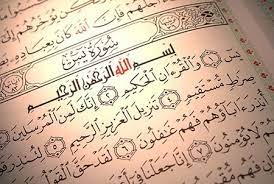 يُؤَخِّرُهُمْ
فَإِنَّ ٱللَّهَ كَانَ بِعِبَادِهِ
سُورَةُ يسٓ
بِسْمِ ٱللَّهِ ٱلرَّحْمَٰنِ ٱلرَّحِيمِ
يسٓ ١ وَٱلْقُرْءَانِ ٱلْحَكِيمِ ٢ إِنَّكَ لَمِنَ ٱلْمُرْسَلِينَ
صِرَٰطٍ مُّسْتَقِيمٍ ٤ تَنزِيلَ ٱلْعَزِيزِ ٱلرَّحِيمِ ٥ لِتُنذِرَ
أُنذِرَ ءَابَآؤُهُمْ فَهُمْ غَٰفِلُونَ ٦ لَقَدْ حَقَّ ٱلْقَوْلُ
لَا يُؤْمِنُونَ ٧ إِنَّا جَعَلْنَا فِىٓ
فَهُم